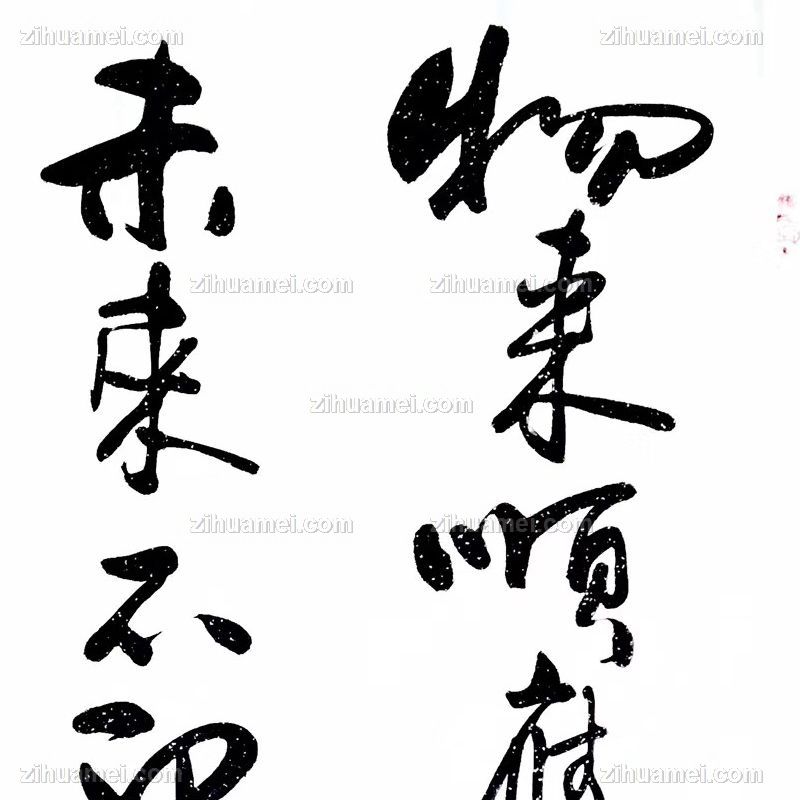 物来順應
未来不迎
zihuamei.com
zihuamei.com
zihuamei.com
zihuamei.com
zihuamei.com
zihuamei.com
zihuamei.com
zihuamei.com
zihuamei.com